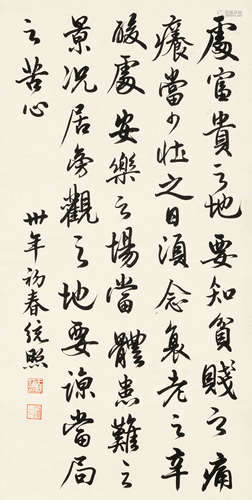 處富貴之地要知貧賤的痛
癢當少壯之日須念衰老之辛
酸處安樂之場當體患難之
景況居旁觀之地要諒當局
之苦心
卅年初春統照